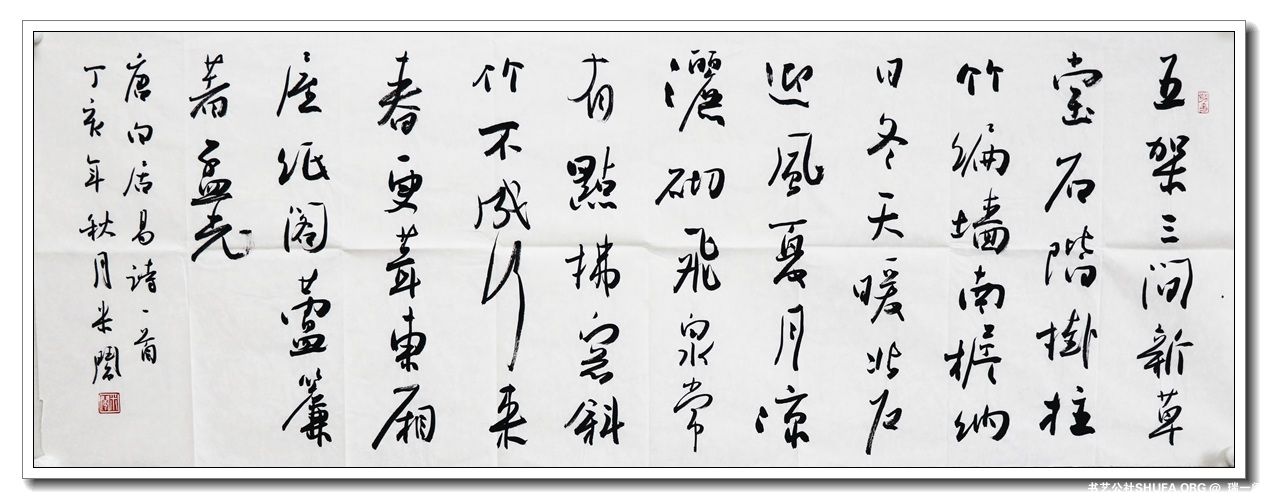 五架三间新草
堂石階掛柱
竹编墙南檐纳
日冬天暖北户
迎風夏月凉
灑砌飛泉常
有點拂窓斜
竹不成行来
春更葺東厢
屋纸阁蘆簾
著孟光
唐白居易诗一首
丁亥年秋月米
书艺公社SHUFA.ORG @ 瑞一